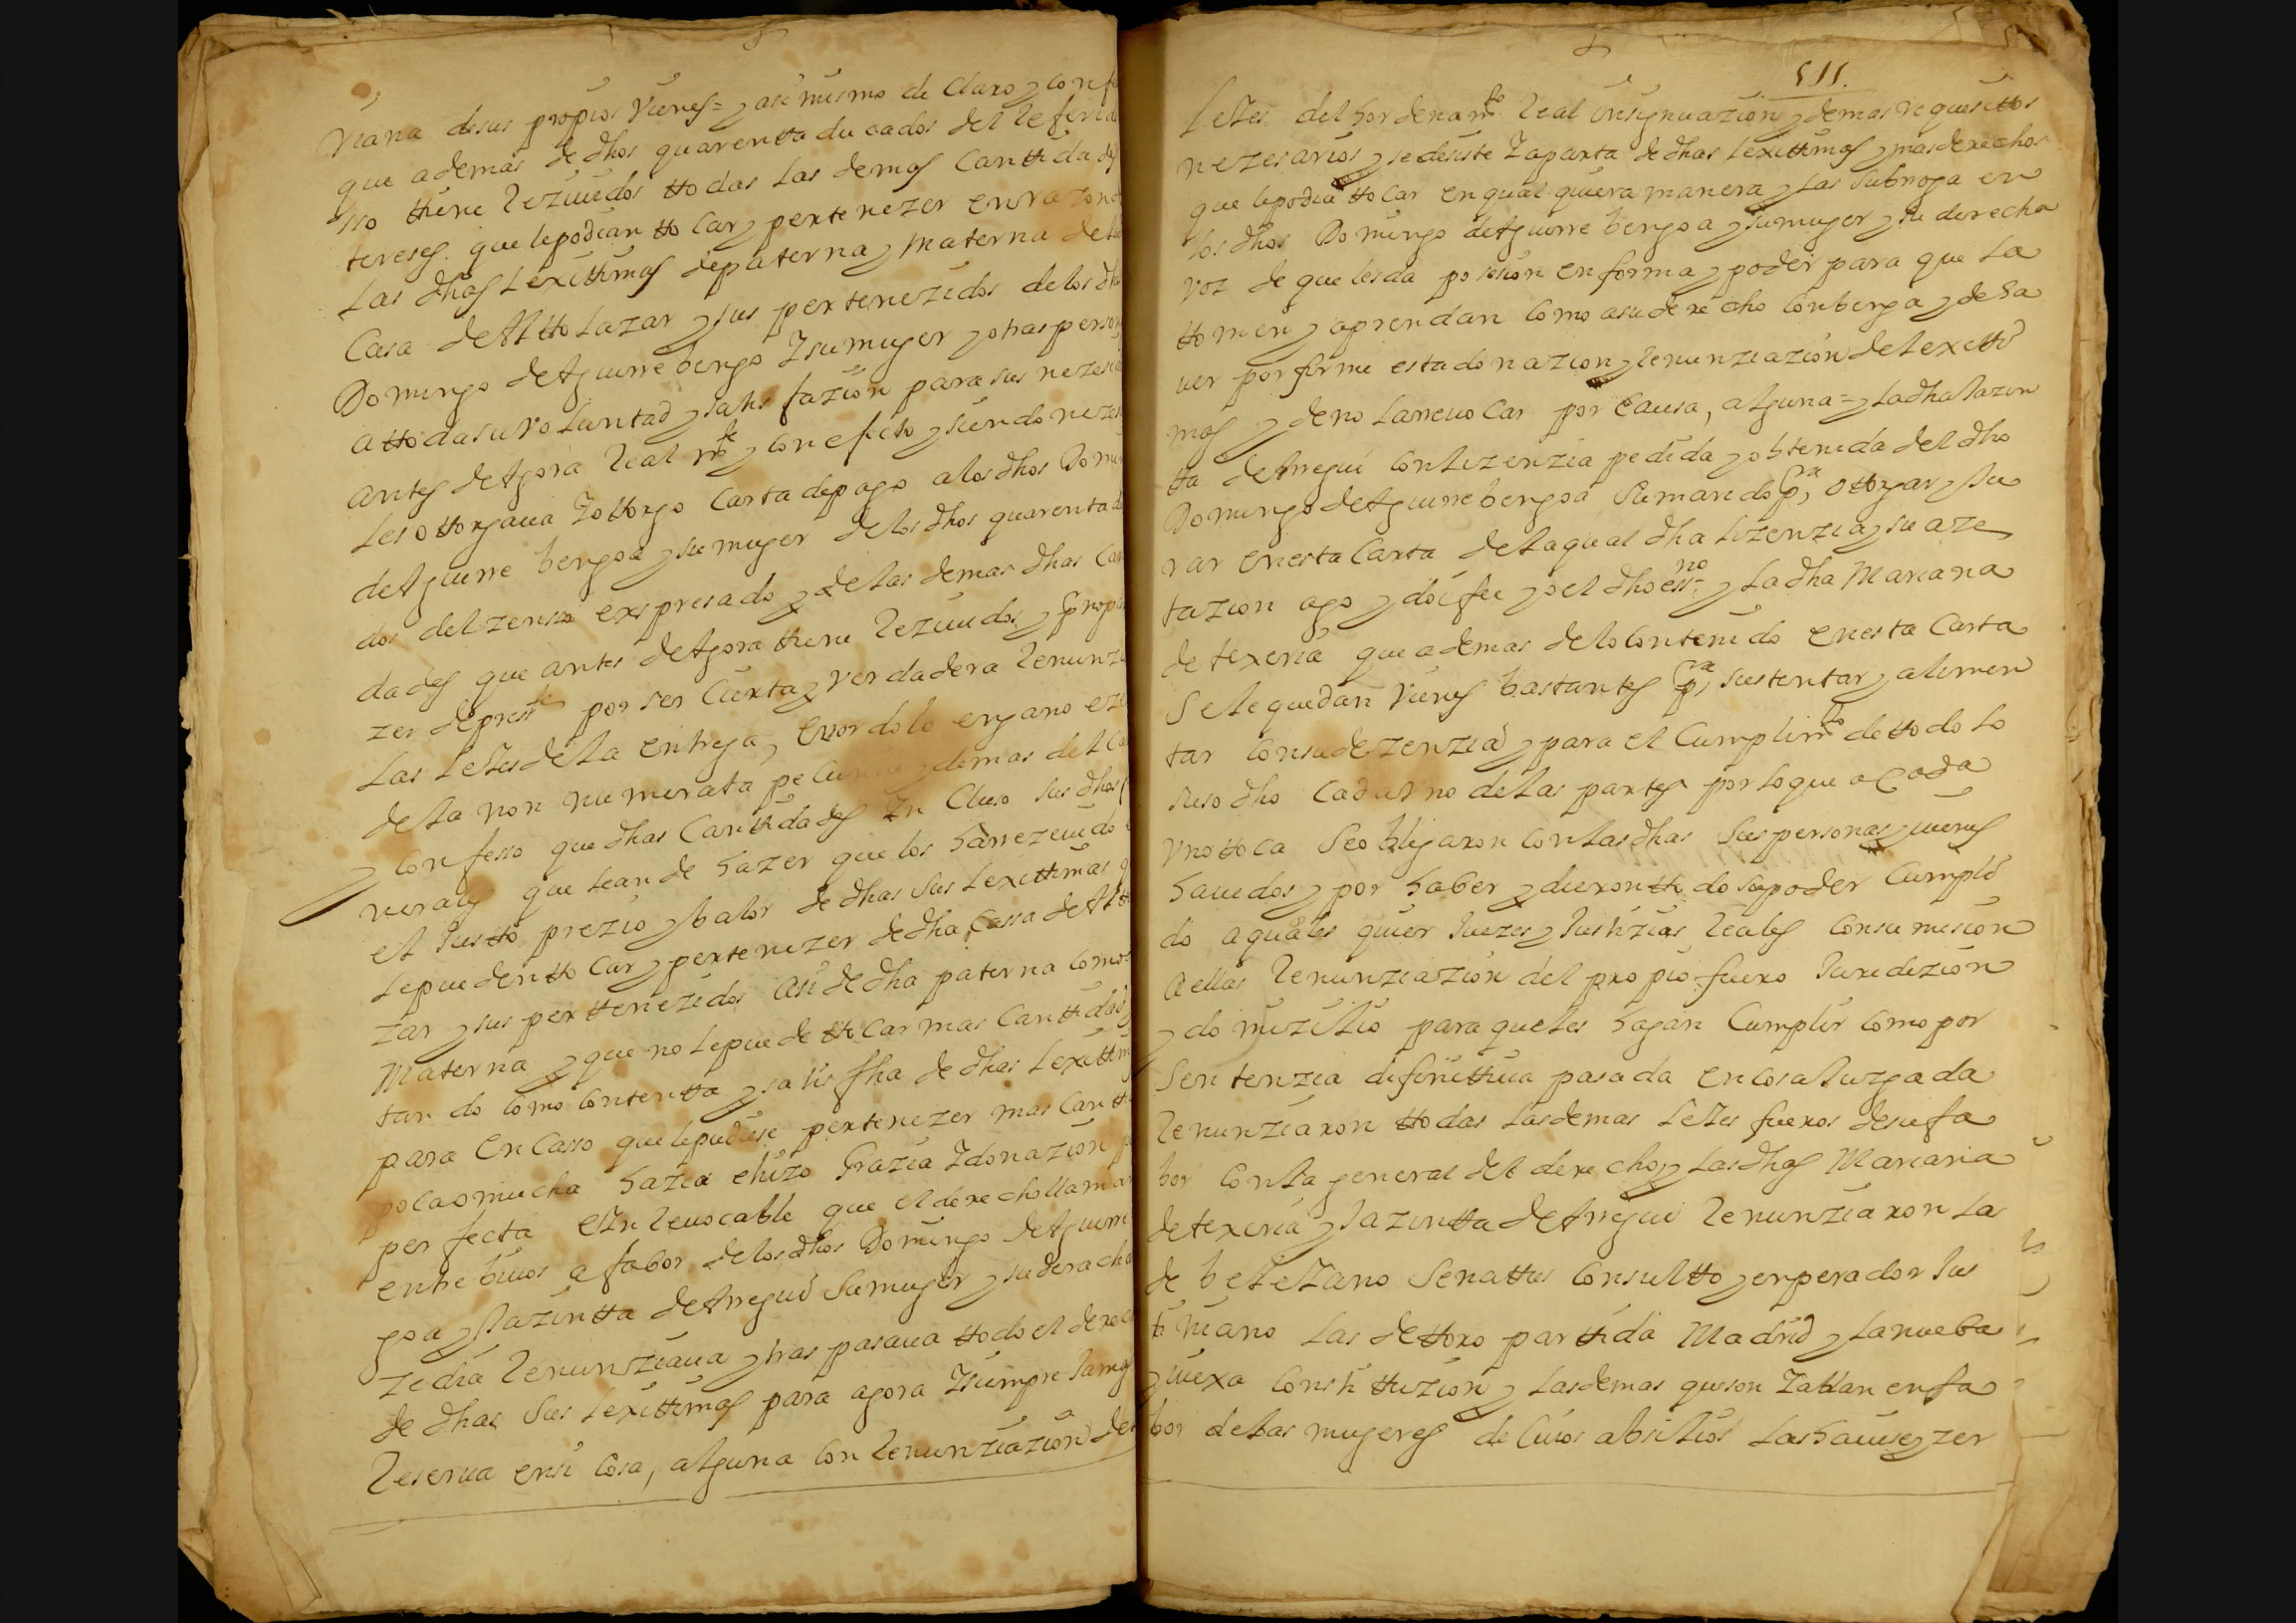 riana desus propios vienes = y asi mismo de claro y con f
que ademas de dhos quarentta ducados del referid
sso thiene rezivdos ttodas las demas cantida des
tereses que lepodian tto car y pertenezer en razon d
las dhas lexittimas depaterna y materna de la
Casa de Altto lazar y sus pertenezidos delos dh
Domingo de Aguirre bengo Y su muger y otras person
a ttoda su voluntad y satis fazion para sus nezesi
antes de Agora real mte y con efecto y siendo nezes
les ottorgaua Y ottorgo Carta de pago alos dhos Domin
de Aguirre bengoa y su muger delos dhos quarenta d
dos del zensso expresado y delas demas dhas can
dades que antes de Agora thiene rezivdos y
zer depreste por ser Cierta y verdadera renunzi
las leies dela entrega, error dolo engano
dela non numerata pecunia y demas del ca
y confesso que dhas Canttidades In Cluso sus dhos
que sean de hazer que los ha rrezeuido
el Justto prezio y balor de dhas sus lexittimas q
le pueden tto car y pertenezer de dha Cassa de Altt
zar y sus perttenezidos asi de dha paterna como
Materna y que no le puede tto car mas Canttidad
tan do como contentta y satis fha de dhas lexittim
para En Casso que le pudiese pertenezer mas Cantti
poca o mucha hazia e hizo Grazia Y donazion p
per fecta e In reuocable que el derecho llama
entre biuos a fabor delos dhos Domingo de Aguirre
goa y Jazintta de Arregui su muger y su derecho
zedia renunziaua y tras pasaua ttodo el derec
de dhas sus lexittimas para agora Y siempre Jamas
reserua en si cosa, alguna con renunziazion de
511.
leies del hordenamto real insignuazion y demas requisittos
nezesarios y se desiste Y aparta de dhas lexittimas y mas derechos
que lepodia tto car en qual quiera manera y las subrroga en
los dhos Domingo de Aguirre bengoa y su muger y su derecho
voz de que les da posesion en forma y poder para que la
ttomen y aprendan como a su derecho conbenga y de ha
uer por firme esta donazion y renunziazion de lexitti
mas y de no la rreuocar por Causa, alguna = y la dha Jazin
tta de Arregui con lizenzia pedida y obtenida del dho
Domingo de Aguirrebengoa su marido pra ottorgar y Ju
rar en esta Carta dela qual dha lizenzia y su aze
tazion ago y doi fee yo el dho essno y la dha Mariana
de texeria que ademas delo contenido en esta Carta
se le quedan vienes bastantes pra sustentar y alimen
tar con su dezenzia y para el Cumplimto de ttodo lo
suso dho cada Vno delas partes por lo que a Cada
Vno ttoca se obligaron con las dhas sus personas y vienes
hauidos y por haber y dieron tto do su poder Cumpli
do a quales quier Juezes y Justizias reales con su mision
a ellas renunziazion del propio fuero Juredizion
y do mizilio para que les hagan Cumplir como por
sentenzia difinittiua pasada en cosa Juzgada
renunziaron ttodas las demas leies fueros de su fa
bor con la general del derecho y las dhas Mariana
de texeria y Jazintta de Arregui renunziaron la
de beleiano senattus consultto y enperador Jus
ti niano las de ttoro parttida Madrid y la nueba
y viexa constittuzion y las demas que son Y ablan en fa
bor de las mugeres de Cuios absilios las hauise y zer